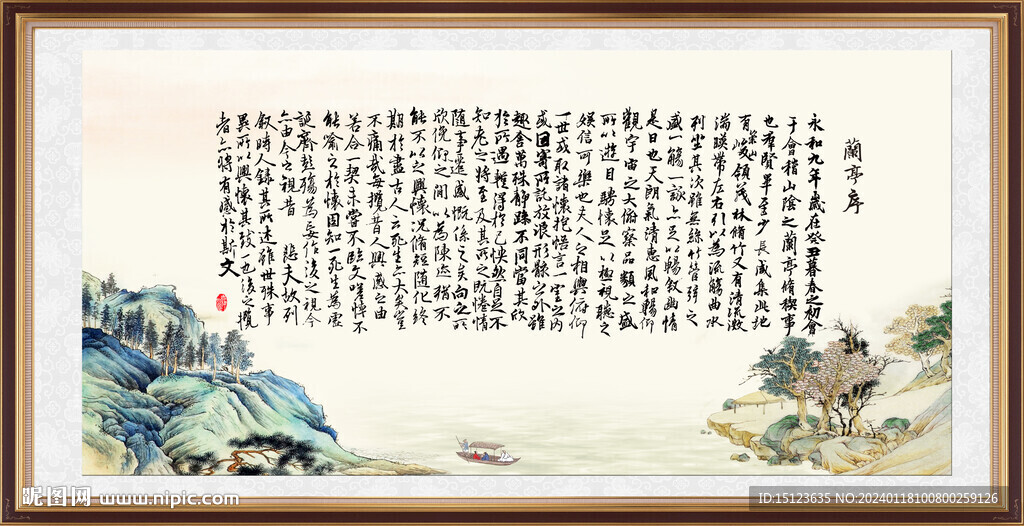 蘭亭序
永和九年歲在癸丑暮春之初會
于會稽山陰之蘭亭脩稧事
也群賢畢至少長咸集此地
有崇山峻領茂林脩竹又有清流激
湍暎帶左右引以為流觴曲水
列坐其次雖無絲竹管弦之
盛一觴一詠亦足以暢敘幽情
是日也天朗氣清惠風和暢仰
觀宇宙之大俯察品類之盛
所以遊目騁懷足以極視聽之
娛信可樂也夫人之相與俯仰
一世或取諸懷抱悟言一室之內
或因寄所託放浪形骸之外雖
趣舍萬殊靜躁不同當其欣
於所遇暫得於己怏然自足不
知老之將至及其所之既惓情
隨事遷感慨係之矣向之所
欣俛仰之間以為陳迹猶不
能不以之興懷況脩短隨化終
期於盡古人云死生亦大矣豈
不痛哉每攬昔人興感之由
若合一契未嘗不臨文嗟悼不
能喻之於懷固知一死生為虛
誕齊彭殤為妄作後之視今
亦由今之視昔 悲夫故列
敘時人錄其所述雖世殊事
異所以興懷其致一也後之攬
者亦將有感於斯文
昵图网 www.nipic.com
ID:15123635 NO:20240118100800259126